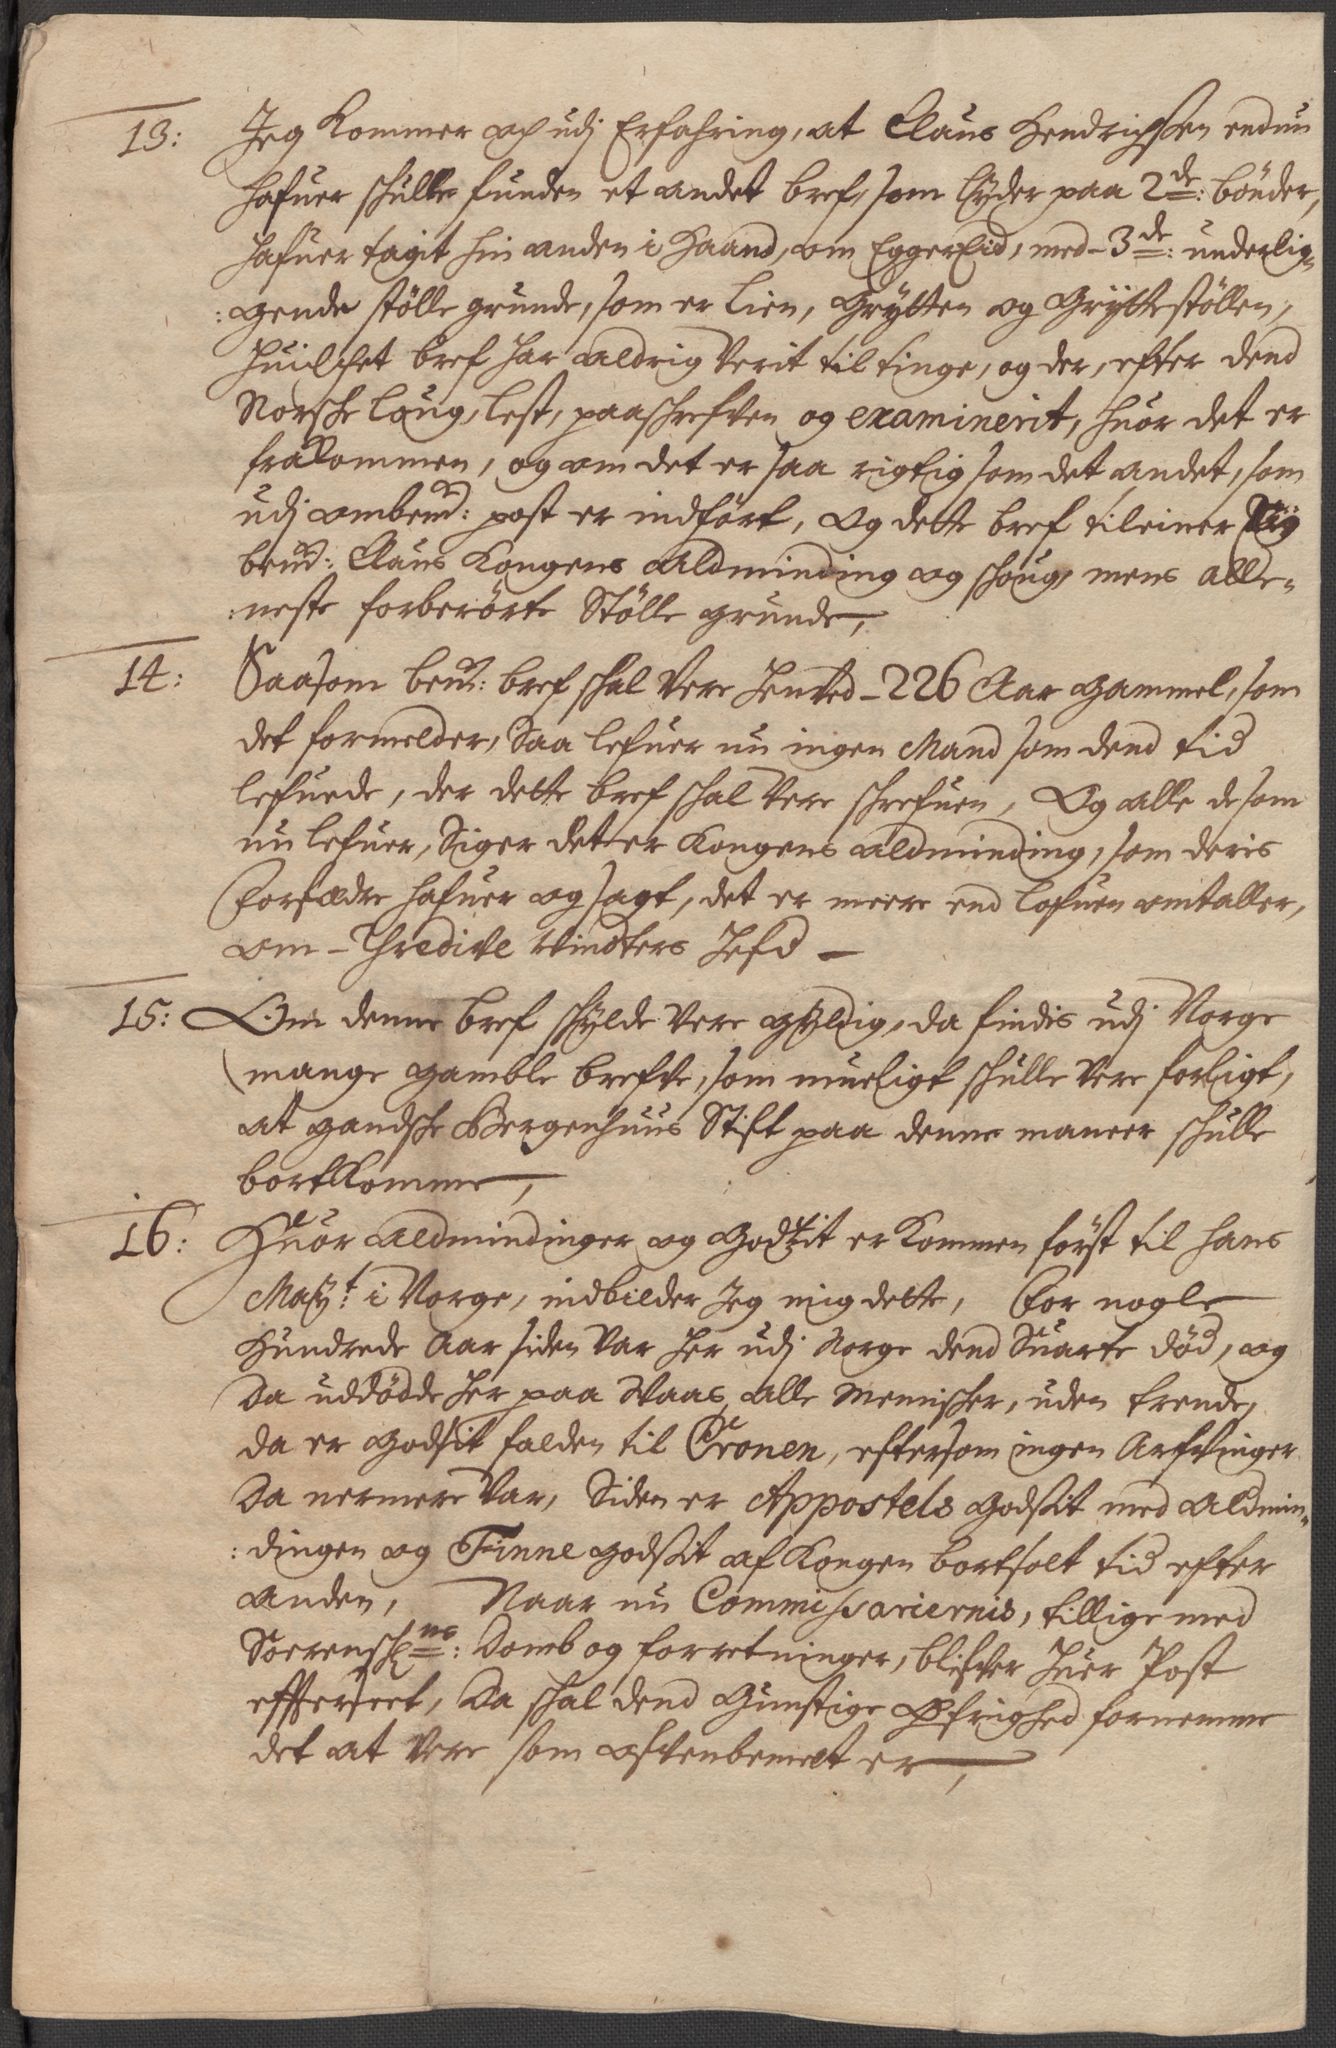 13: Jeg Kommer og udj Erfahring, at Claus Hendrichsen endnu
hafuer schulle funden et andet bref, som lyder paa 2de: bönder,
hafuer tagit hin anden i Haand, om EggerEid, med 3de: underlig-
:gende stölle grunde, som er Lien, Grytten og Gryttestöllen,
huilchet bref har aldrig Verit til tinge, og der, efter dend
Norsche loug, lest, paaschrefven og examinerit, huor det er
frakommen, og om det er saa rigtig som det andet, som
udj ombemd: post er indfört, Og dette bref tileiner
bemd: Claus Kongens Aldminding og schoug, mens alle-
:neste forberörte Stölle grunde,
14: Saasom bemd: bref schal Vere henved 226 Aar gammel, som
det formelder, Saa lefuer nu ingen Mand som dend tid
lefuede, der dette bref schal Vere schrefuen, Og alle de som
nu lefuer, Siger det er Kongens aldminding, som deris
Forfædre hafuer og sagt, det er meere end Lofuen omtaller,
om Thredive Vindters Hefd
15: Om denne bref schylde Vere gyldig, da findis udj Norge
mange gamble brefve, som mueligt schulle Vere forligt,
at gandsche Bergenhuus Stift paa denne maneer schulle
bortKomme,
16: Huor Aldmindinger og Godtzit er Kommen först til Hans
Mayt: i Norge, indbilder Jeg mig dette, For nogle
Hundrede Aar siden Var her udj Norge dend Suarte död, og
Da uddödde her paa Waas alle Menischer, uden trende,
da er Godsit falden til Cronen, eftersom ingen Arfvinger
Da nermere Var, Siden er Appostels Godsit med Aldmin-
:dingen og Finne Godsit af Kongen bortsolt tid efter
anden, Naar nu Commissariernis, tillige med
Sorenschrns: Domb og forretninger, blifver huer Post
effterseet, Da schal dend Gunstige Öfrighed fornemme
det at Vere som ofvenbemelt er,